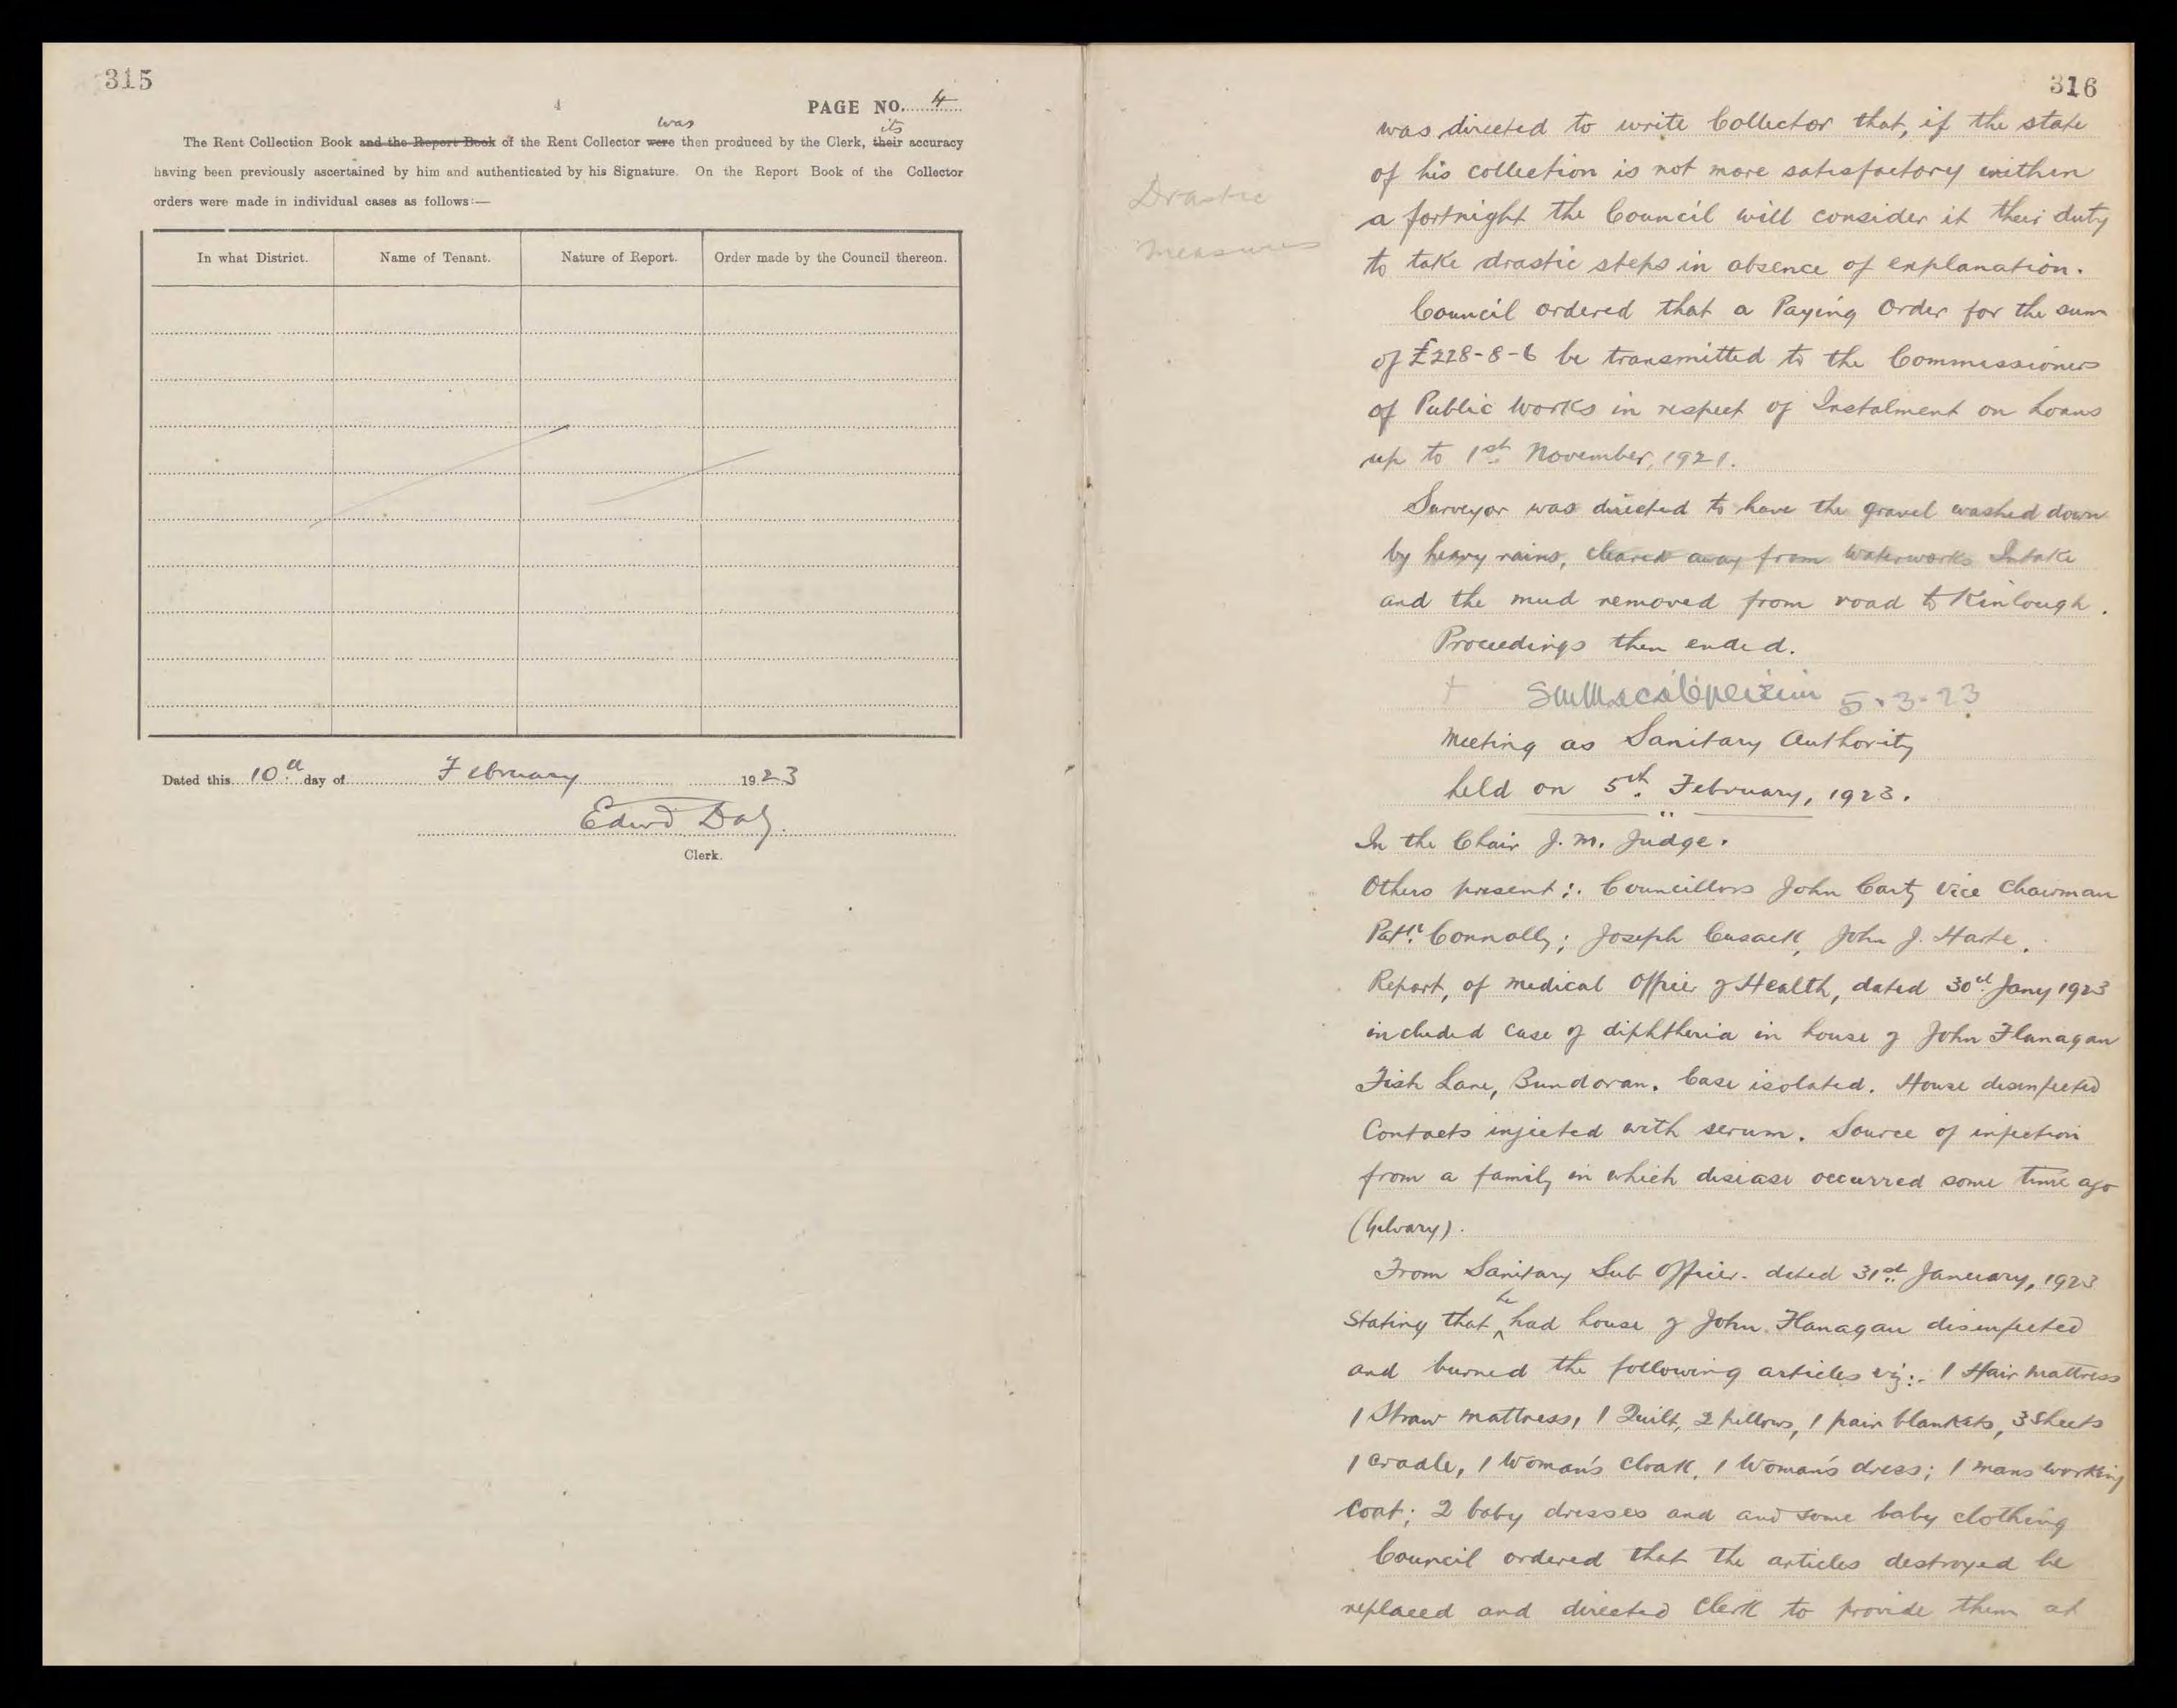 315
4
PAGE NO. 4
was its
The Rent Collection Book and the Report Book of the Rent Collector were then produced by the Clerk, their accuracy
having been previously ascertained by him and authenticated by his Signature. On the Report Book of the Collector
orders were made in individual cases as follows:—
In what District. Name of Tenant. Nature of Report. Order made by the Council thereon.
Dated this 10th day of February 1923
Edwd Daly.
Clerk.
316
Drastic
measures
was directed to write Collector that, if the state
of his collection is not more satisfactory within
a fortnight the Council will consider it their duty
to take drastic steps in absence of explanation.
Council ordered that a Paying Order for the sum
of £228-8-6 be transmitted to the Commissioners
of Public Works in respect of Instalment on Loans
up to 1st November, 1921.
Surveyor was directed to have the gravel washed down
by heavy rains, cleared away from Waterworks Intake
and the mud removed from road to Kinlough.
Proceedings then ended.
5.3.23
Meeting as Sanitary Authority
held on 5th February, 1923.
In the Chair J. M. Judge.
Others present:. Councillors John Carty Vice Chairman
Patk. Connolly; Joseph Cusack, John J. Harte.
Report, of Medical Officer of Health, dated 30th Jany 1923
included case of diphtheria in house of John Flanagan
Fish Lane, Bundoran. Case isolated. House disinfected
Contacts injected with serum. Source of infection
from a family in which disease occurred some time ago
From Sanitary Sub Officer. dated 31st January, 1923
he
stating that ^ had house of John Flanagan disinfected
and burned the following articles viz:. 1 Hair mattress
1 Straw mattress, 1 Quilt, 2 pillows, 1 pair blankets, 3 Sheets
1 cradle, 1 Woman's cloak, 1 Woman's dress; 1 mans working
coat; 2 baby dresses and and some baby clothing
Council ordered that the articles destroyed be
replaced and directed Clerk to provide them at